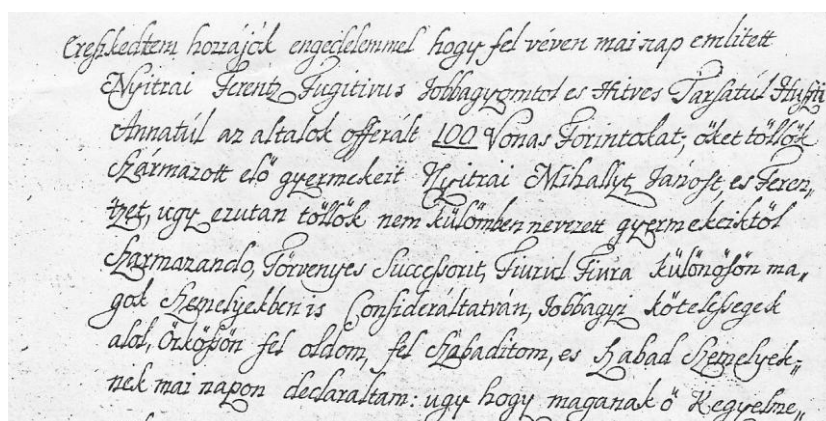 Ereszkedtem hozzájok engedelemmel hogy fel véven mai nap emlitett
Nyitrai Ferentz Fugitivus Jobbagyomtol es Hitves Tarsatúl
Annatúl az altalok offerált 100 Vonas Forintokat; öket töllök
Származott elö gyermekeit Nyitrai Mihallyt, Janost, es Feren„
tzet, ugy ezutan töllök nem külömben nevezett gyermekeiktöl
Szarmazando, Törvenyes Successorit, Fiurul Fiura különösön ma„
gok Szemelyekben is Consideráltatván, Jobbagyi kötelessegek
alol, Örökösön fel oldom, fel Szabaditom, es Szabad Szemelyek„
nek mai napon declaraltam: ugy hogy maganak ö Kegyelme„